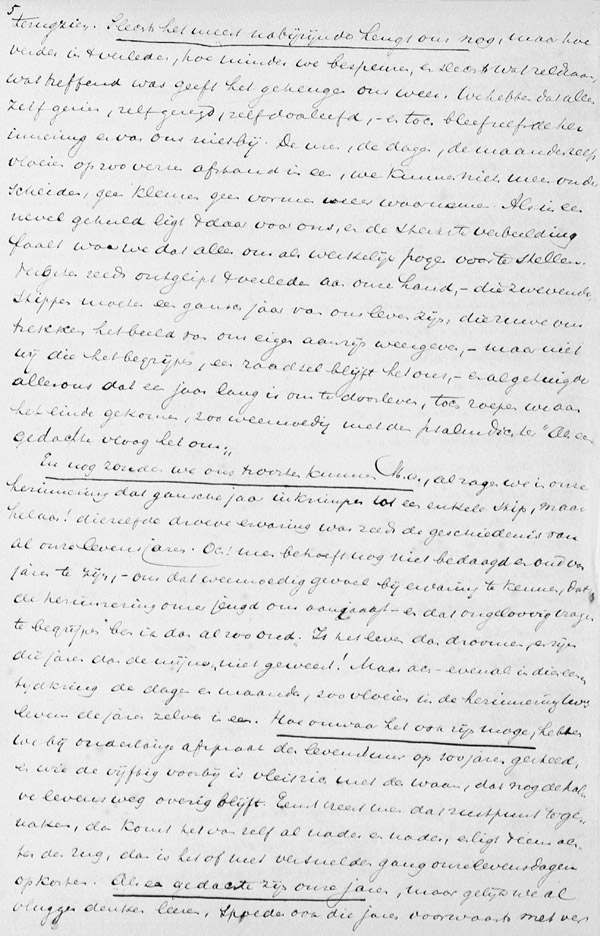 5
terugzien. Slechts het meest nabijzijnde heugt ons nog, maar hoe
verder in 't verleden, hoe minder we bespeuren, en slechts wat zeldzaam,
wat treffend was geeft het geheugen ons weer. We hebben dat alles
zelf gezien, zelf gevoeld, zelf doorleefd, - en toch bleef zelfs de her
innering ervan ons niet bij. De uren, de dagen, de maanden zelfs
vloeien op zoo verren afstand in een, we kunnen niet meer onder
scheiden, geen kleuren geen vormen meer waarnemen. Als in een
nevel gehuld ligt 't daar voor ons, en de sterkste verbeelding
faalt waar we dat alles ons als werkelijk pogen voor te stellen.
Vergeten reeds ontglipt 't verleden aan onze hand, - die zwevende
stippen moeten een gansch jaar van ons leven zijn, die ruwe om
trekken het beeld van ons eigen aanzijn weergeven, - maar niet
wij die het begrijpen, een raadsel blijft het ons, - en al getuigde
alles ons dat een jaar lang is om te doorleven, toch roepen we aan
het einde gekomen, zoo weemoedig met den psalmdichter "Als een
gedachte vloog het om".
En nog zouden we ons troosten kunnen M.H., al zagen we in onze
herinnering dat gansche jaar inkrimpen tot een enkele stip, maar
helaas! diezelfde droeve ervaring was reeds de geschiedenis van
al onze levensjaren. Och! men behoeft nog niet bedaagd en oud van
jaren te zijn, - om dat weemoedig gevoel bij ervaring te kennen, dat
de herinnering onzer jeugd ons aanjaagt - en dat ongeloovig vragen
te begrijpen "ben ik dan al zoo oud". "Is het leven dan droomen, en zijn
die jaren dan de mijne niet geweest! Maar ach - evenals in die eene
tijdkring de dagen en maanden, zoo vloeien in de herinnering huns
levens de jaren zelven in een. Hoe onwaar het ook zijn moge, hebben
we bij onderlinge afspraak den levensduur op 100 jaren gesteld,
en wie de vijftig voorbij is vleit zich met den waan, dat nog de hal-
ve levensweg overig blijft. Eerst vreest men dat rustpunt te ge-
naken, dan komt het van zelf al nader en nader, en ligt 't eens ach
ter de rug, dan is het of met versnelden gang onze levensdagen
opkorten. Als een gedachte zijn onze jaren, maar gelijk we al
vlugger denken leeren, spoeden ook die jaren voorwaarts met ver